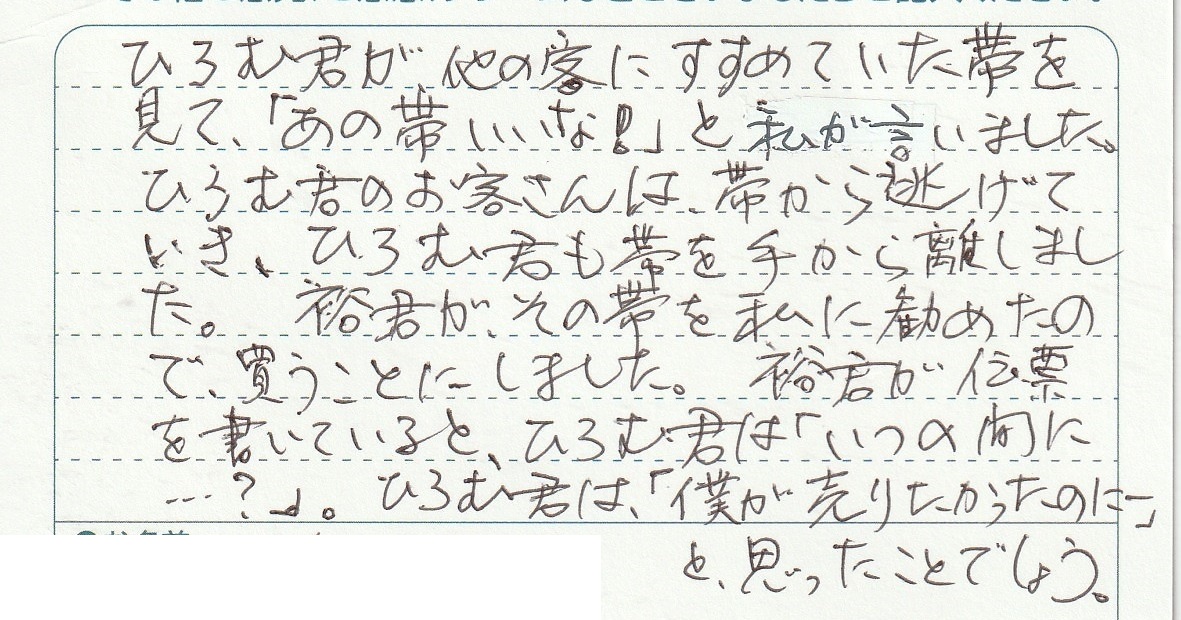 ひろむ君が、他の客にすすめていた帯を
見て、「あの帯いいな!」と私が言いました。
ひろむ君のお客さんは、帯から逃げて
いき、ひろむ君も帯を手から離しまし
た。 裕君が、その帯を私に勧めたの
で、買うことにしました。 裕君が伝票
を書いていると、ひろむ君は「いつの間に
…?」。ひろむ君は、「僕が売りたかったのにー」
と、思ったことでしょう。